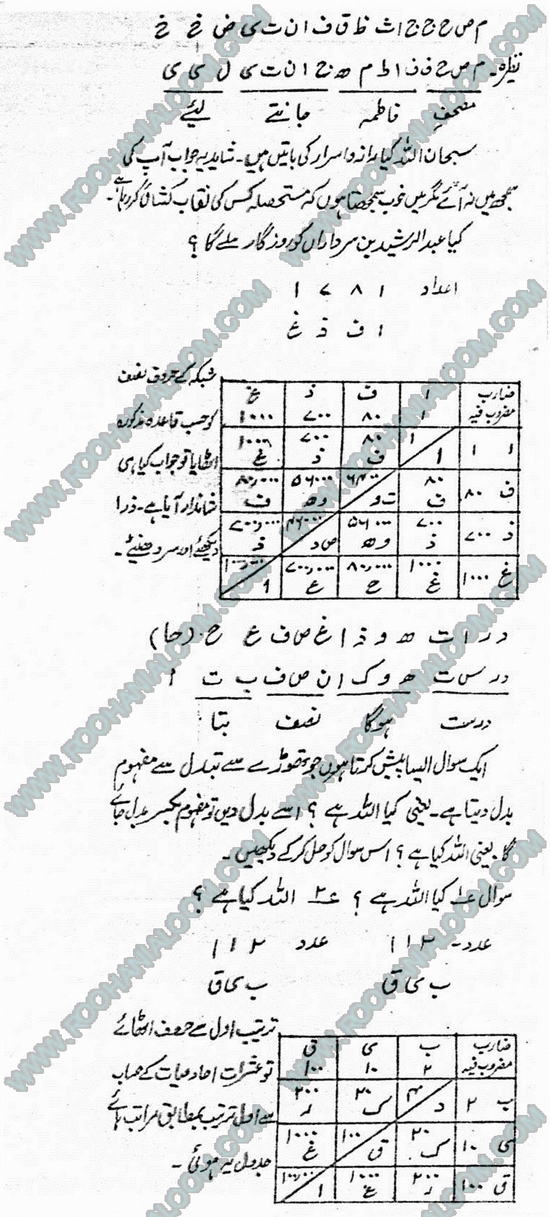 م ص ح ج ج ا ث ظ ق ف ا ن ت ی ض غ خ
نظیرہ۔ م ص ح ف ف ا ط م ھ ج ا ن ت ی ل ی ی
مصحف فاطمہ جانتے لیئے
سبحان اللہ کیا راز و اسرار کی باتیں ہیں۔ شاید یہ جواب آپ کی
سمجھ میں نہ آئے مگر میں خوب سمجھتا ہوں کہ مستحصلہ کس کی نقاب کشائی کر رہا ہے۔
کیا عبدالرشید بن سرداراں کو روزگار ملے گا ؟
اعداد ۱ ۸ ۷ ۱
ا ف ذ غ
شبکہ کے حروف نصف
کو حسب قاعدہ مذکورہ
اٹھایا تو جواب کیا ہی
شاندار آیا ہے۔ ذرا
دیکھئے اور سر دھنیے۔
ضارب مضروب فیہ ا ۱ ف ۸۰ ذ ۷۰۰ غ ۱۰۰۰
ا ۱ ۱ ا ۸۰ ف ۷۰۰ ذ ۱۰۰۰ غ
ف ۸۰ ۸۰ ف ۶۴۰۰ ت و ۵۶۰۰۰ و ھ ۸۰،۰۰۰ ف
ذ ۷۰۰ ۷۰۰ ذ ۵۶۰۰۰ و ھ ص د ذ
غ ۱۰۰۰ ۱۰۰۰ غ ۸۰،۰۰۰ ح ۷۰۰،۰۰۰ ع ا
د ر ا ت ھ و ذ ا غ ص ا ف ع ح (حا)
د ر س ت ھ و ک ا ن ص ف ب ت ا
درست ہوگا نصف بتا
ایک سوال ایسا پیش کرتا ہوں جو تھوڑے سے تبدل سے مفہوم
بدل دیتا ہے۔ یعنی کیا اللہ ہے ؟ اسے بدل دیں تو مفہوم یکسر بدل جائے
گا۔ یعنی اللہ کیا ہے ؟ اس سوال کو حل کر کے دیکھیں۔
سوال ۱ کیا اللہ ہے ؟ ۲ اللہ کیا ہے ؟
عدد۔ ۱۱۲ عدد ۱۱۲
ب ی ق ب ی ق
ترتیب اول سے حروف اٹھائے
تو عشرات احاد میات کے حساب
سے اول ترتیب بمطابق مراتب ہائے
جدول یہ ہوئی۔
ضارب مضروب فیہ ب ۲ ی ۱۰ ق ۱۰۰
ب ۲ ۴ د ۲۰ ک ۲۰۰ ر
ی ۱۰ ۲۰ ک ۱۰۰ ق ۱۰۰۰ غ
ق ۱۰۰ ۲۰۰ ر ۱۰۰۰ غ ۱۰،۰۰۰ ا
WWW.ROOHANIALOOM.COM